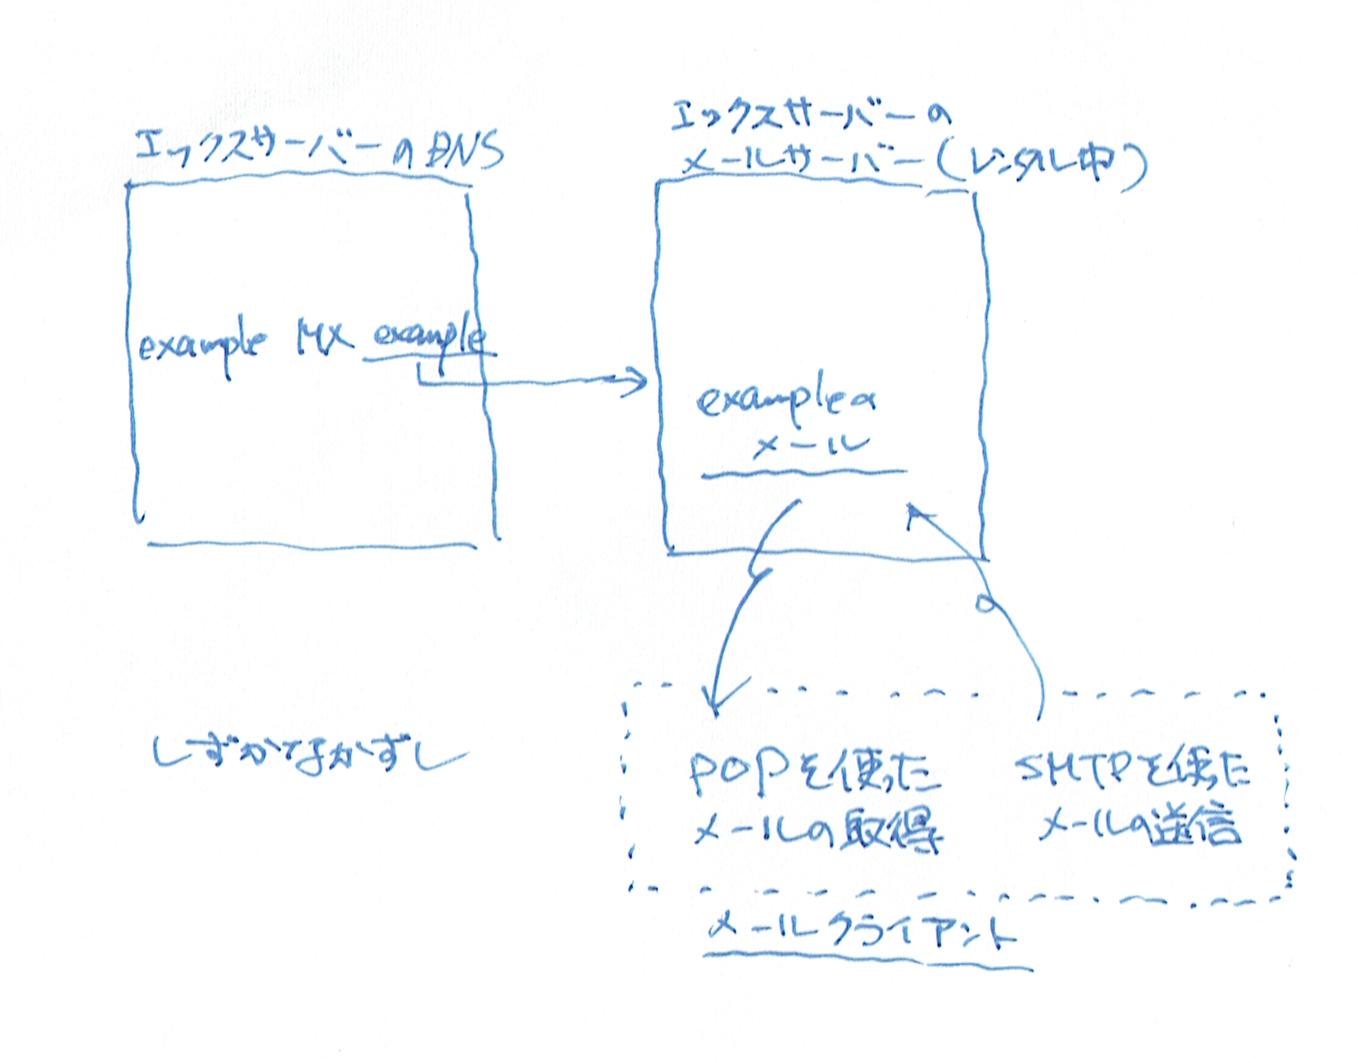 エックスサーバーのDNS
example MX example
エックスサーバーの
メールサーバー(レンタル中)
exampleの
メール
しずかなかずし
POPを使った
メールの取得
SMTPを使った
メールの送信
メールクライアント